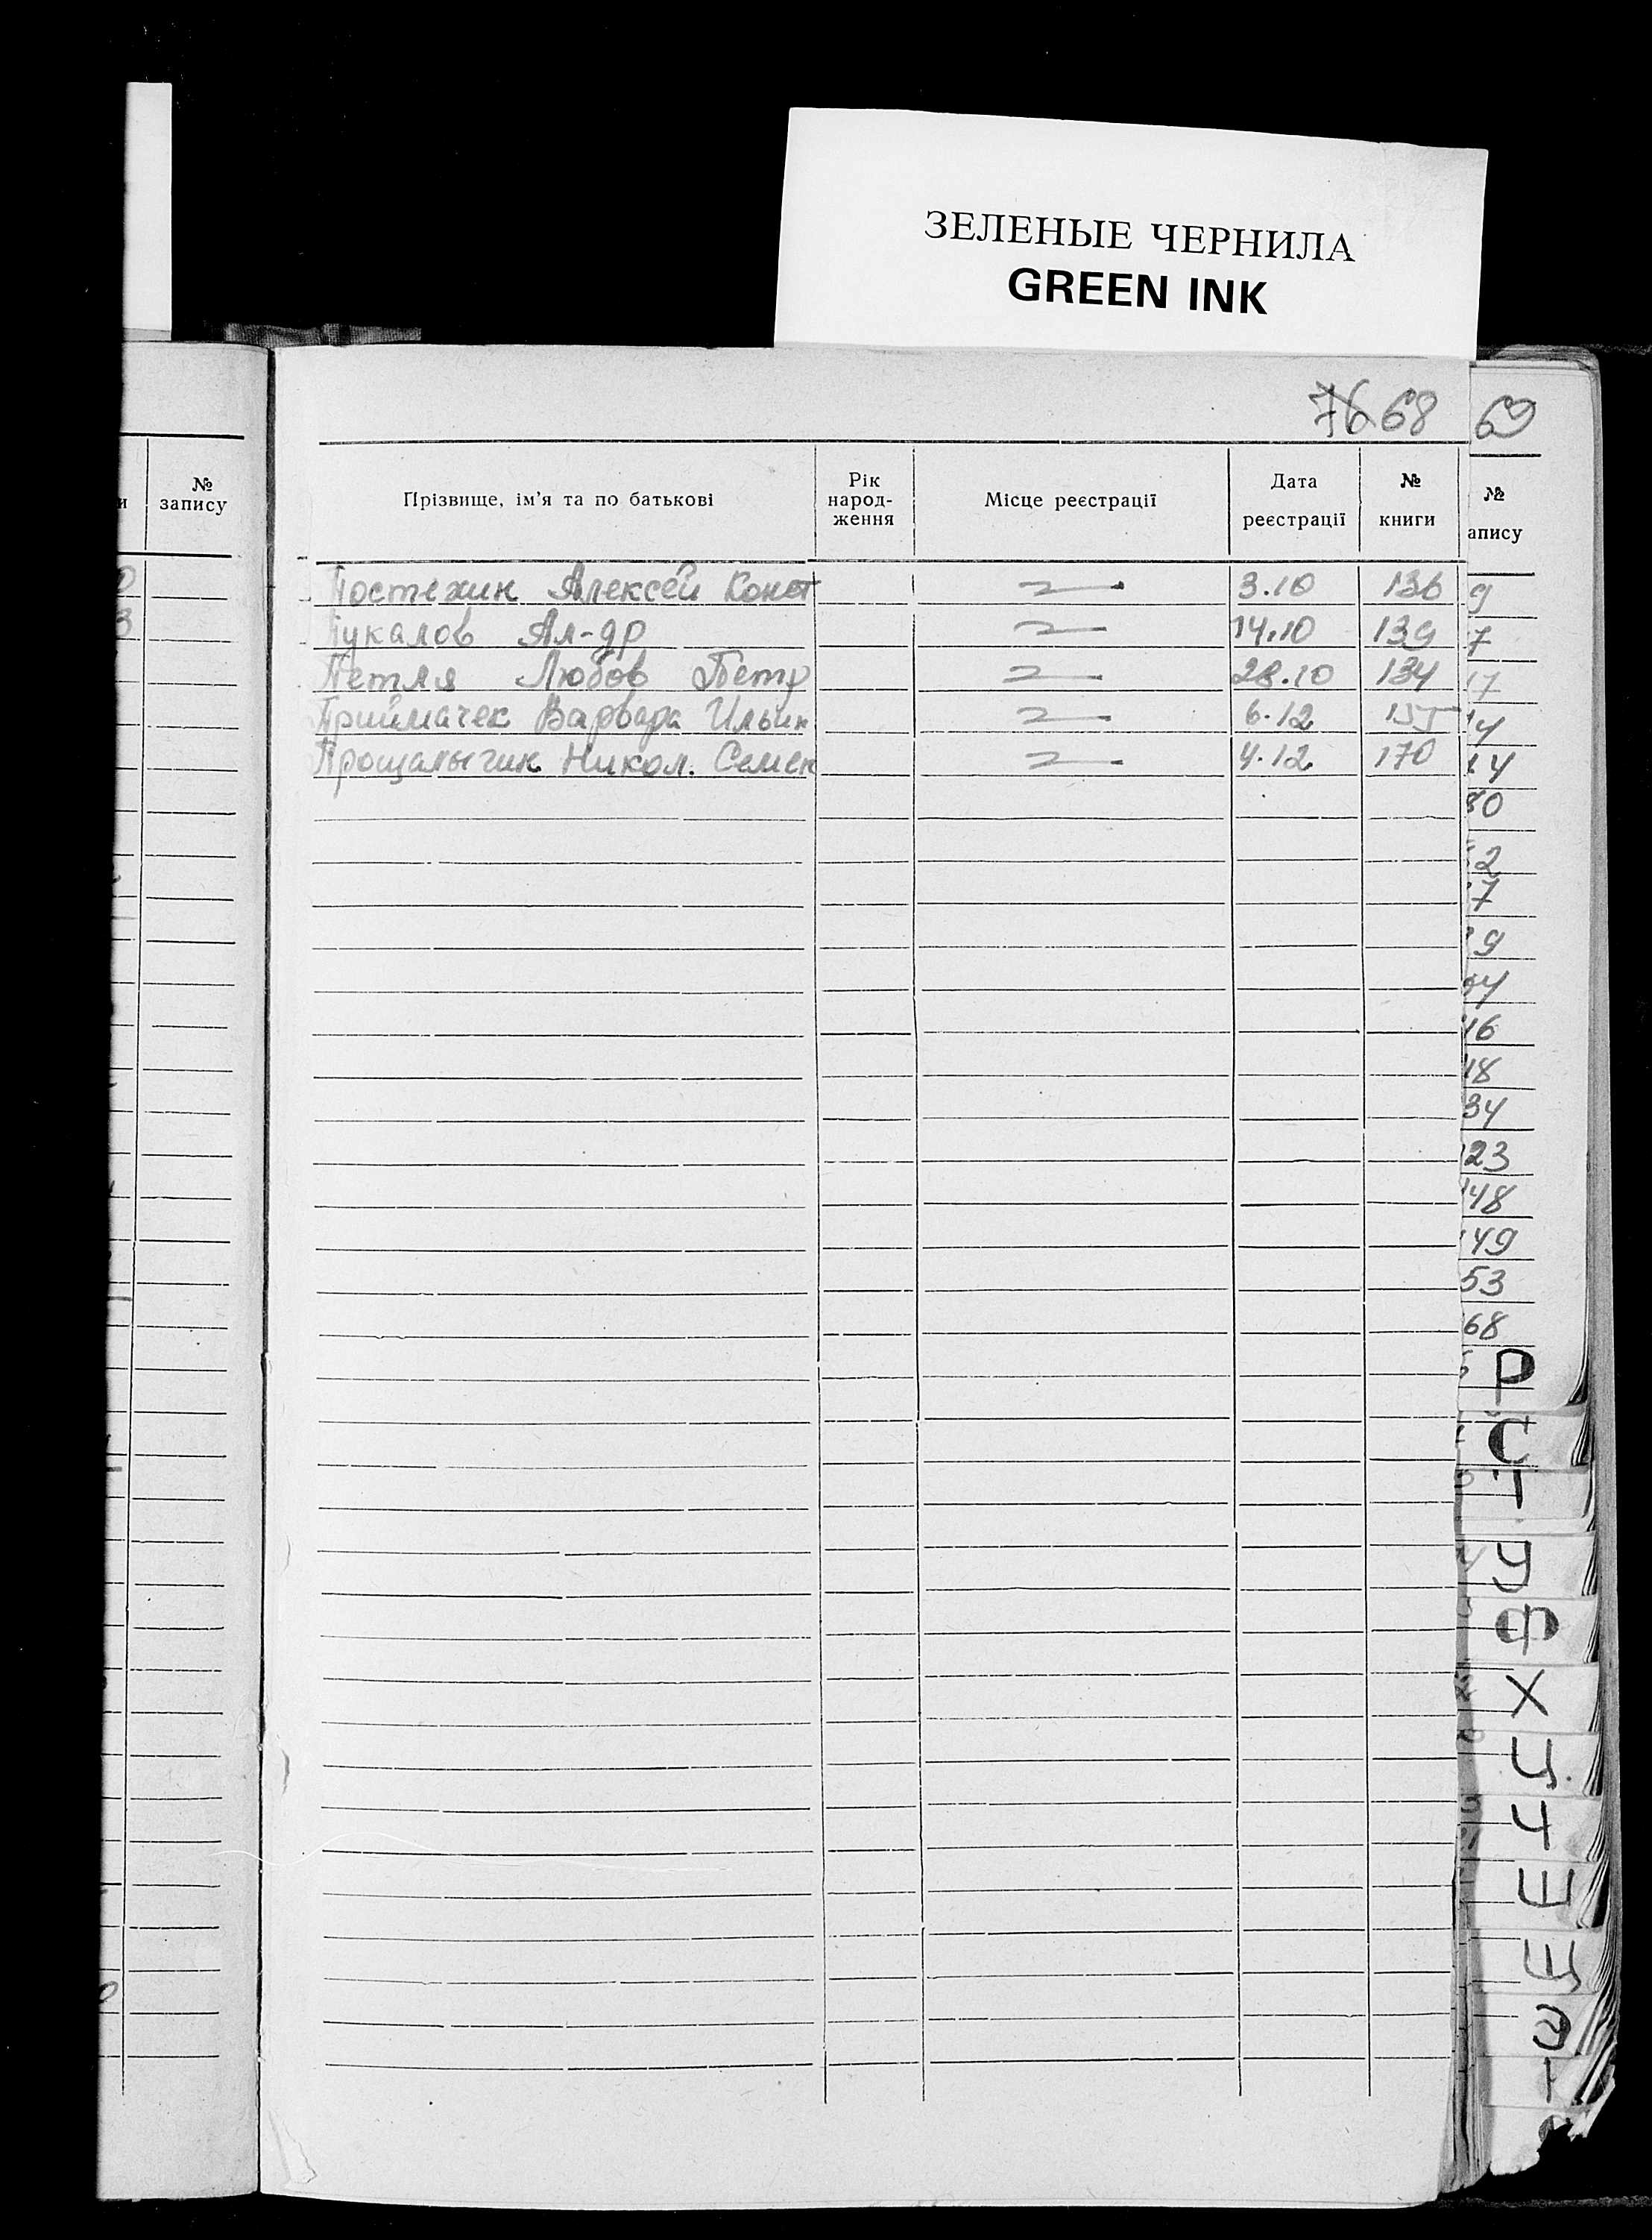 ЗЕЛЕНЫЕ ЧЕРНИЛА
GREEN INK
76 68 69
№ запису
Прізвище, ім'я та по батькові
Рік народ-ження
Місце реєстрації
Дата реєстрації
№ книги
№
апису
Постехин Алексей Конст 3.10 136 9
Пукалов Ал-др 14.10 139 7
Петля Любов Петр 28.10 134 17
Приймачек Варвара Ильин 6.12 155 14
Прощалыгин Никол. Семен 4.12 170 14
80
52
77
39
34
23
148
149
53
68
Р
С
Т
У
Ф
Х
Ц
Ч
Ш
Щ
Э